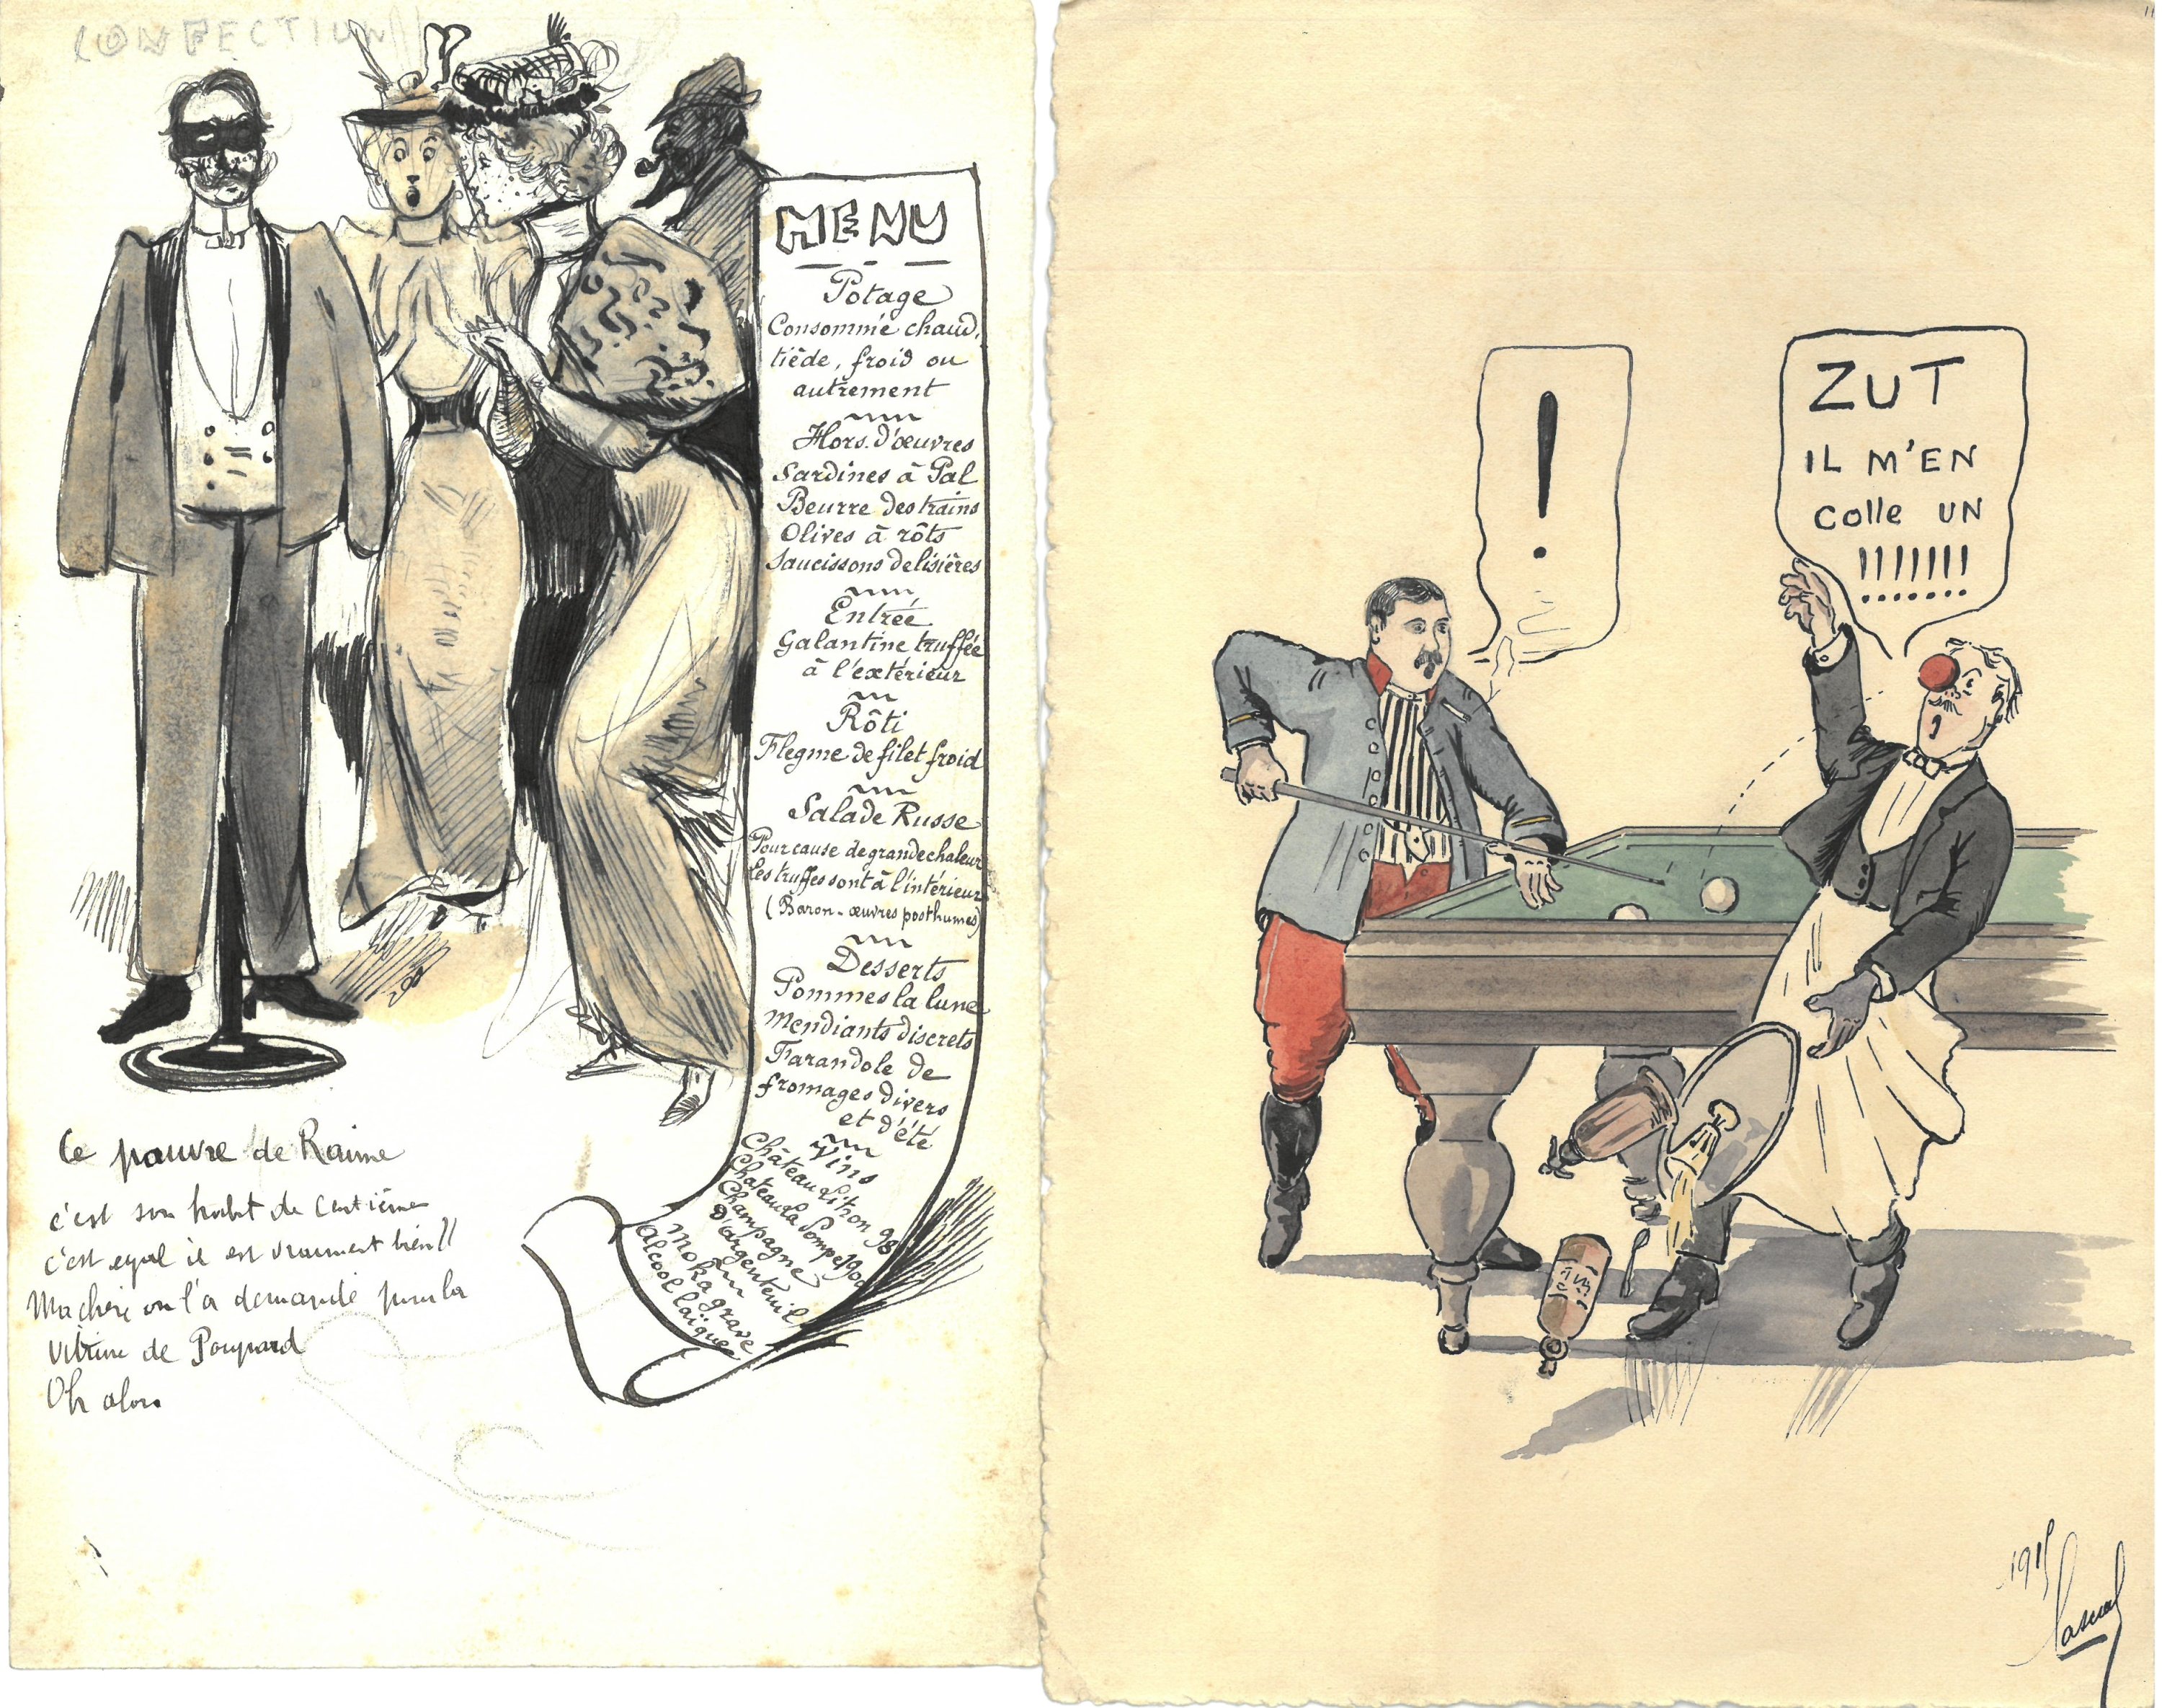 CONFECTION
MENU
Potage
Consommé chaud,
tiède, froid ou
autrement
Hors-d'œuvres
Sardines à Pal
Beurre des trains
Olives à rôts
Saucissons de lisières
Entrée
Galantine truffée
à l'extérieur
Rôti
Flegme de filet froid
Salade Russe
Pour cause de grande chaleur
les truffes sont à l'intérieur
(Baron - œuvres posthumes)
Desserts
Pommes la lune
Mendiants discrets
Farandole de
fromages divers
et d'été
Vins
Château Litron 98
Chateau La Pompe 1900
Champagne
D'argenteuil
Moka grave
Alcool laïque
Ce pauvre de Raime
c'est son habit de centième
c'est egal il est vraiment bien !!
Ma chère on l'a demandé pour la
vitrine de Poupard
Oh alors
!
ZUT
IL M'EN
COLLE UN
!!!!!!!
1915
Pascal